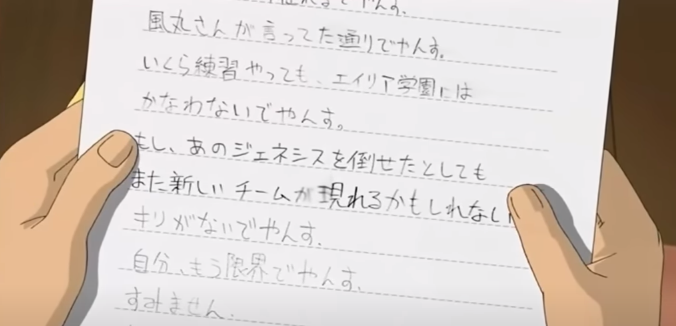 でやんす.
風丸さんが言ってた通りでやんす.
いくら練習やっても、エイリア学園には
かなわないでやんす。
もし、あのジェネシスを倒せたとしても
また新しいチームが現れるかもしれない
キリがないでやんす.
自分、もう限界でやんす.
すみません.